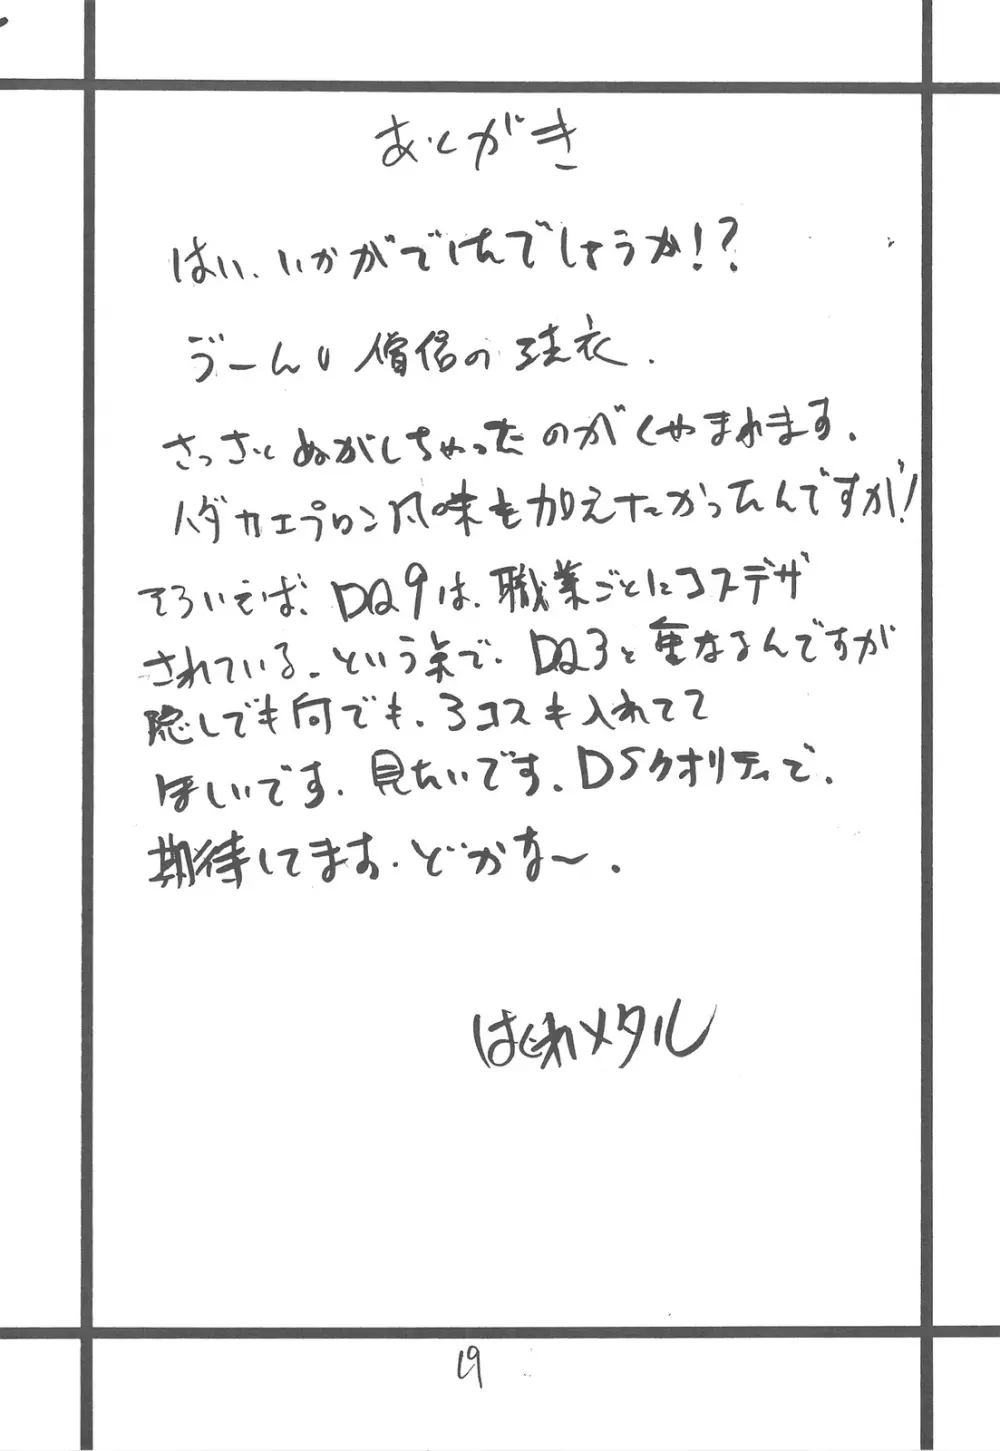 あとがき
はい、いかがでしたでしょうか!?
うーん、僧侶の法衣、
さっさとぬがしちゃったのがくやまれます。
ハダカエプロン風味も加えたかったんですが!
そういえば、DQ9は、職業ごとにコスデザ
されている。という事で、DQ3と重なるんですが
隠しでも何でも、3コスも入れてて
ほしいです。見たいです。DSクオリティで。
期待してます。どかな〜。
はぐれメタル
19